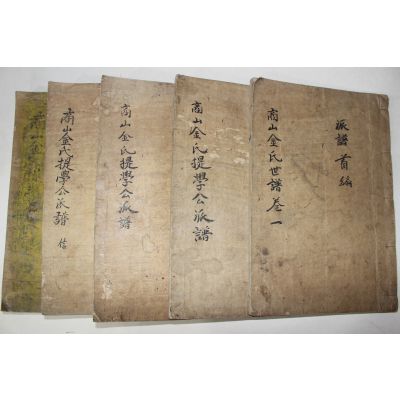 派譜首編
商山金氏世譜卷一
商山金氏提學公派譜
商山金氏提學公派譜
商山金氏提學公派譜 信
商山